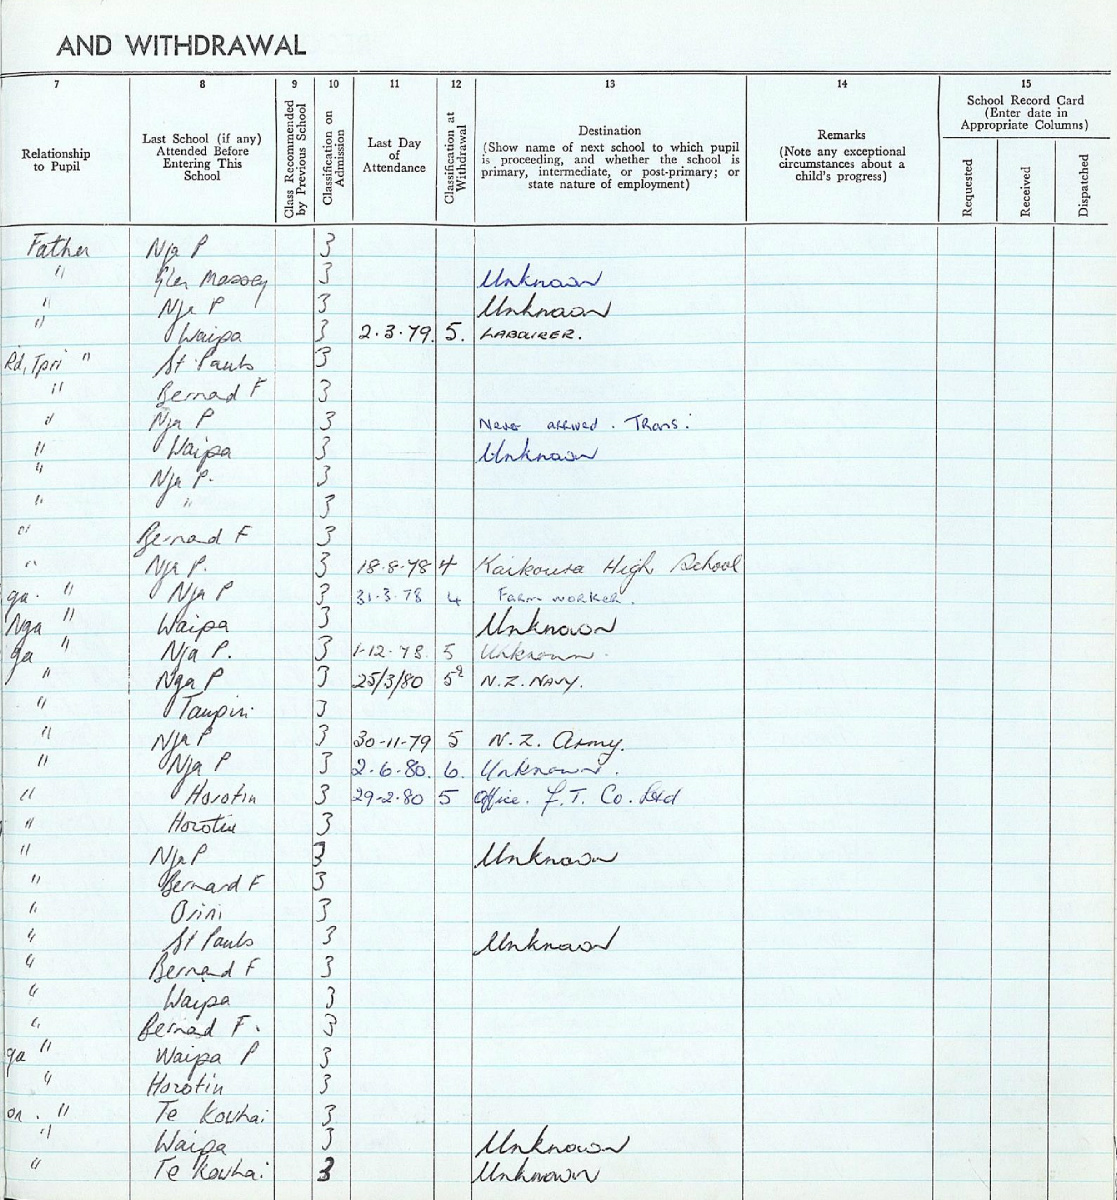 AND WITHDRAWAL
7 8 9 10 11 12 13 14 15
Relationship to Pupil
Last School (if any) Attended Before Entering This School
Class Recommended by Previous School
Classification on Admission
Last Day of Attendance
Classification at Withdrawal
Destination
(Show name of next school to which pupil is proceeding, and whether the school is primary, intermediate, or post-primary; or state nature of employment)
Remarks
(Note any exceptional circumstances about a child's progress)
School Record Card
(Enter date in Appropriate Columns)
Requested
Received
Dispatched
Father Nga P 3
" Glen Massey 3 Unknown
" Nga P 3 Unknown
" Waipa 3 2.3.79. 5. LABOURER.
Rd, Tpri " St Pauls 3
" Bernad F 3
" Nga P 3 Never arrived. Trans:
" Waipa 3 Unknown
" Nga P. 3
" " 3
" Bernard F 3
" Nga P. 3 18.8.78 4 Kaikoura High School
ga. " Nga P 3 31-3-78 4 Farm worker.
Nga " Waipa 3 Unknown
ga " Nga P. 3 1-12-78. 5 Unknown.
" Nga P 3 25/3/80 5² N.Z. NAVY.
" Taupiri 3
" Nga P 3 30-11-79 5 N.Z. Army.
" Nga P 3 2-6-80. 6. Unknown.
" Horotiu 3 29-2-80 5 Office. F.T. Co. Ltd
" Horotiu 3
" Nga P 3 Unknown
" Bernard F 3
" Orini 3
" St Pauls 3 Unknown
" Bernard F 3
" Waipa 3
" Bernad F. 3
ga " Waipa P 3
" Horotiu 3
on. " Te Kowhai 3
" Waipa 3 Unknown
" Te Kowhai 3 Unknown